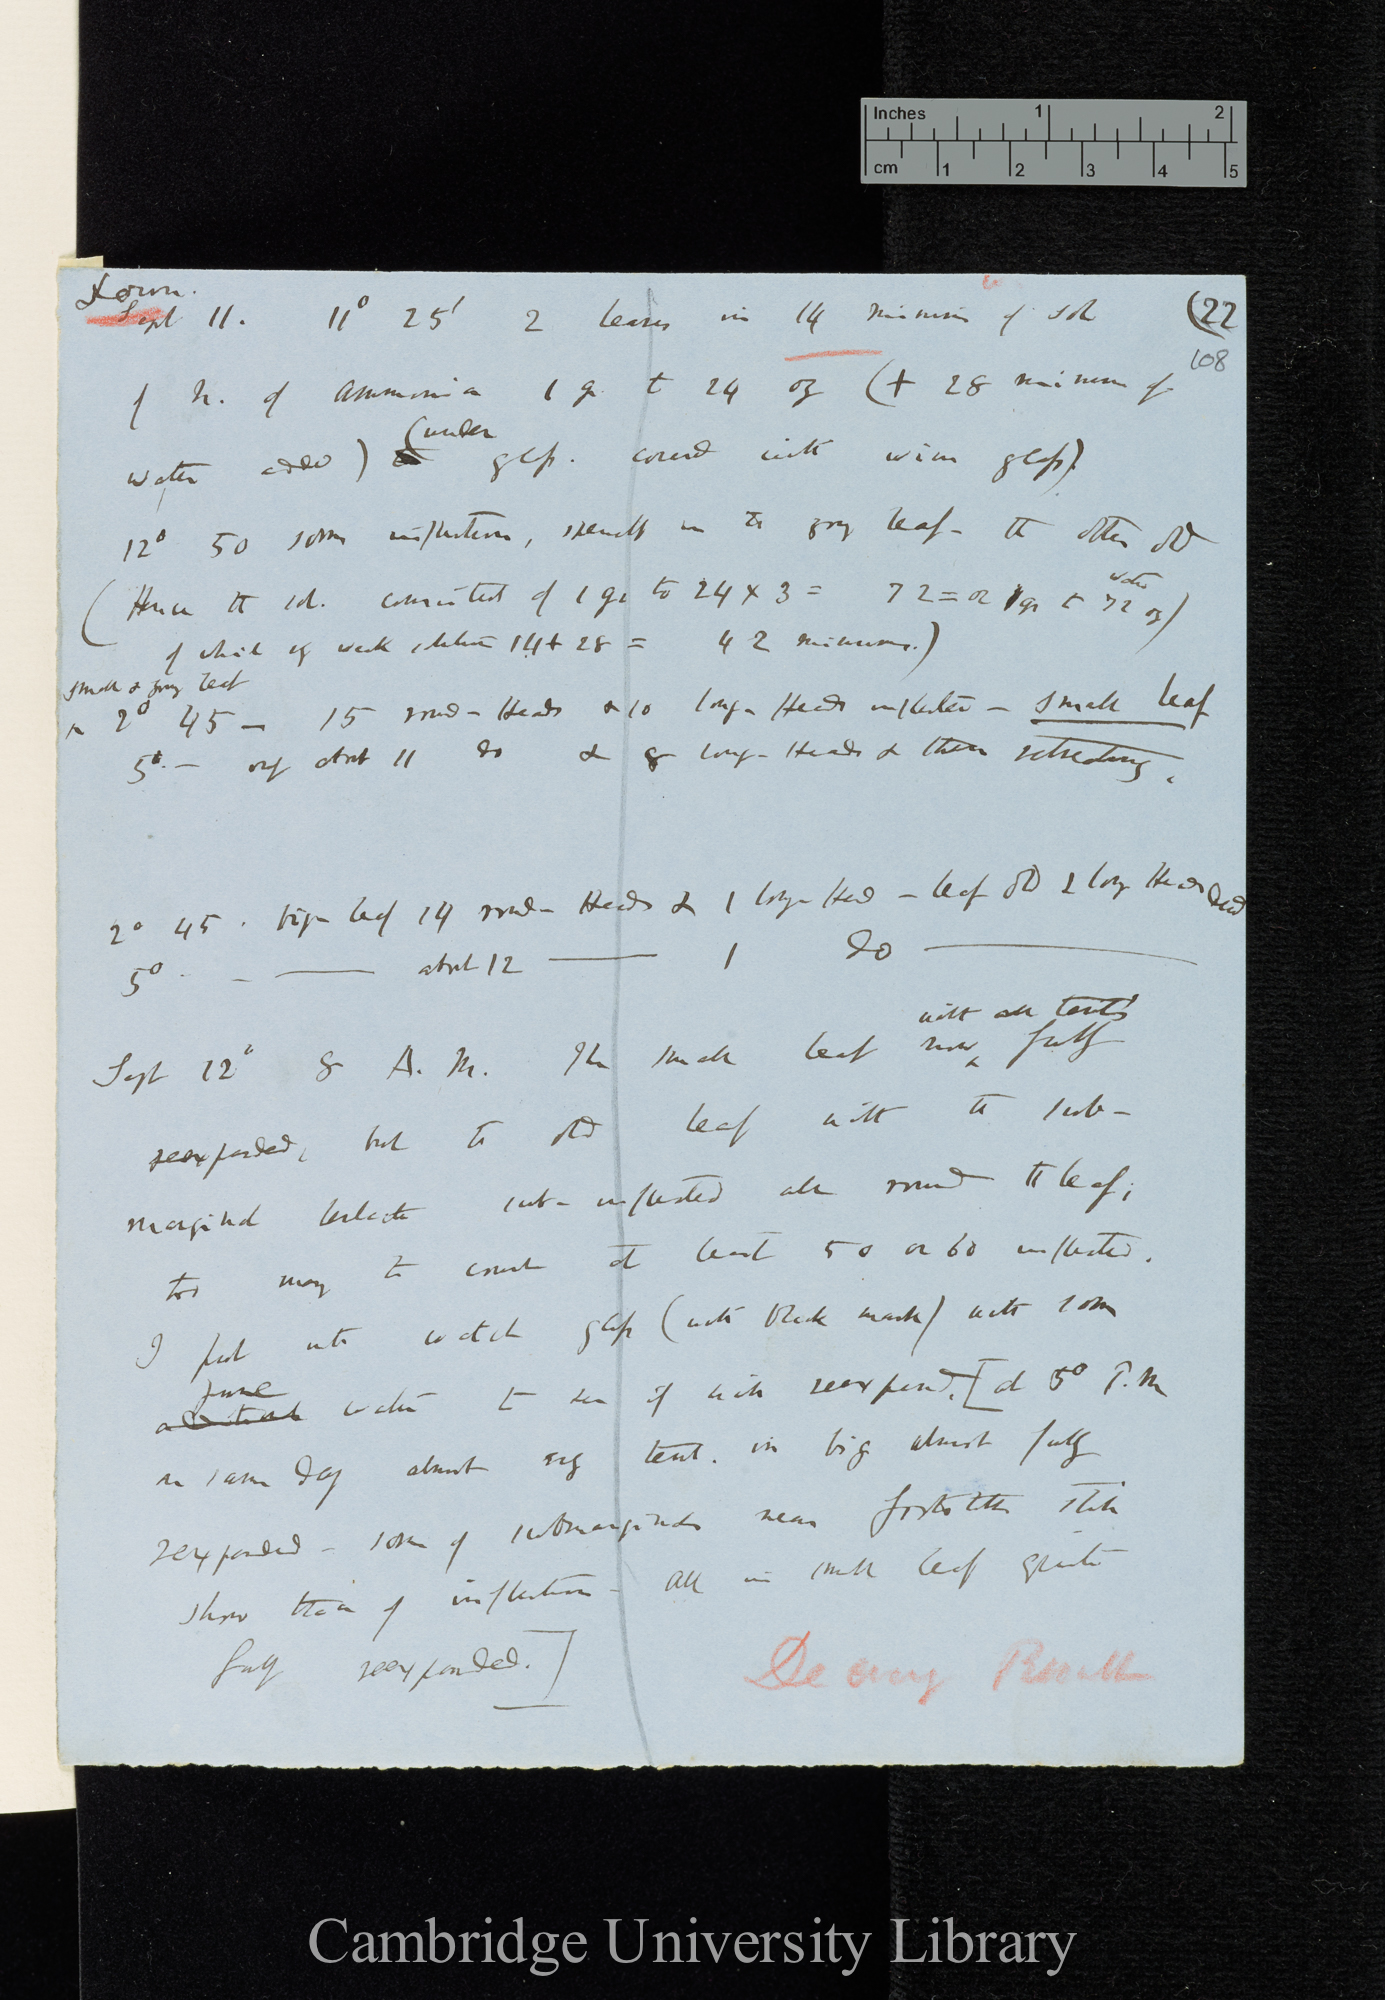 Inches 1 2
cm 1 2 3 4 5
Down.
Sept 11. 11° 25' 2 leaves in 14 minims of sol. (22
108
of N. of Ammonia 1 gr to 24 oz (+ 28 minims of
water added) (under
glass. covered with wine glass)
12° 50 some inflection, especially in the young leaf – the other old
(Hence the sol. consisted of 1 gr to 24 x 3 = 72 = or 1 gr to 72 oz water)
of which weak solution 14 + 28 = 42 minims.)
small & young leaf
2° 45 – 15 round-Heads & 10 long-Heads inflected – small leaf
5° – only about 11 do & 8 long-Heads & these
2° 45. big leaf 14 round-Heads & 1 long-Head – leaf old 2 long Heads dead
5° – about 12 1 do
with all tent's
Sept 12° 8 A.M. The small leaf now fully
reexpanded, but the old leaf with the sub-
marginal tentacles sub-inflected all round the leaf;
too many to count at least 50 or 60 inflected.
I put into watch glass (with black mark) with some
pure
water to see if will reexpand. [at 5° P.M
on same day almost every tent. in big almost fully
reexpanded – some of submarginals near footstalk still
show trace of inflection – all in small leaf quite
fully reexpanded.]
Result
Cambridge University Library